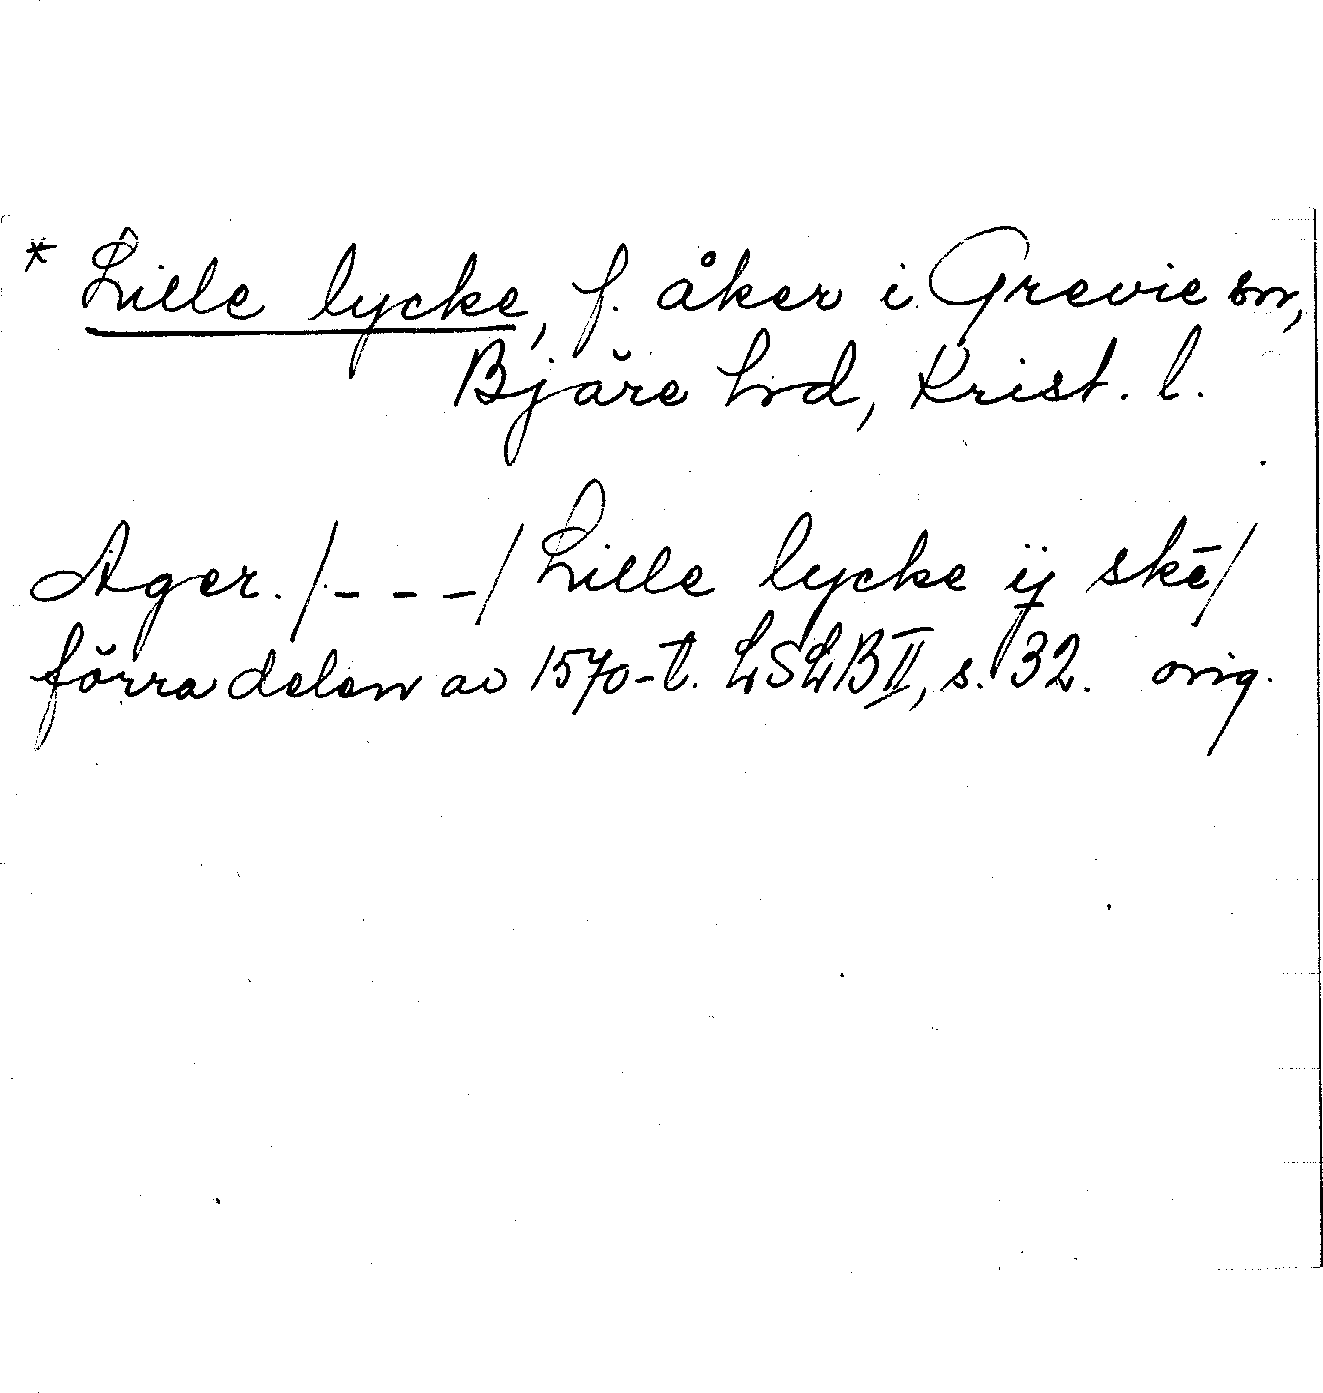 * Lille lycke, f. åker i Grevie sn,
Bjäre hrd, Krist. l.
Ager. /- - -/ Lille lycke ij skē/
förra delen av 1570-t. LSLB II, s. 32. orig.